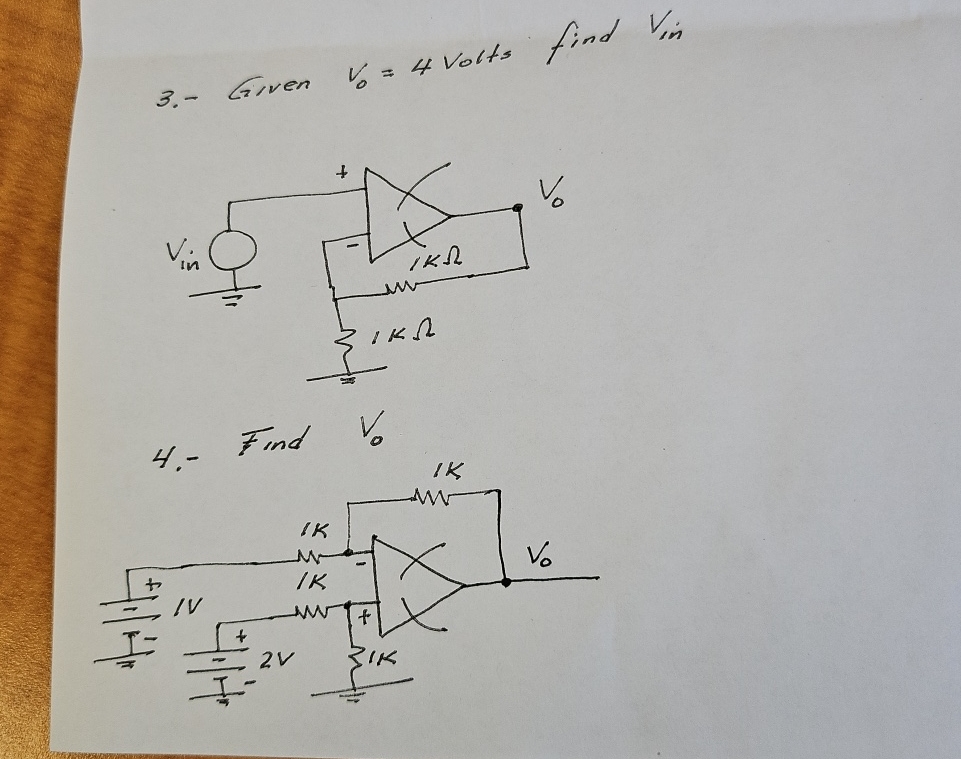 3.- Given Vo = 4 Volts find Vin
+
Vo
Vin
-
1KΩ
1KΩ
4.- Find Vo
1K
1K
-
Vo
+
1V
1K
-
+
+
2V
1K
-